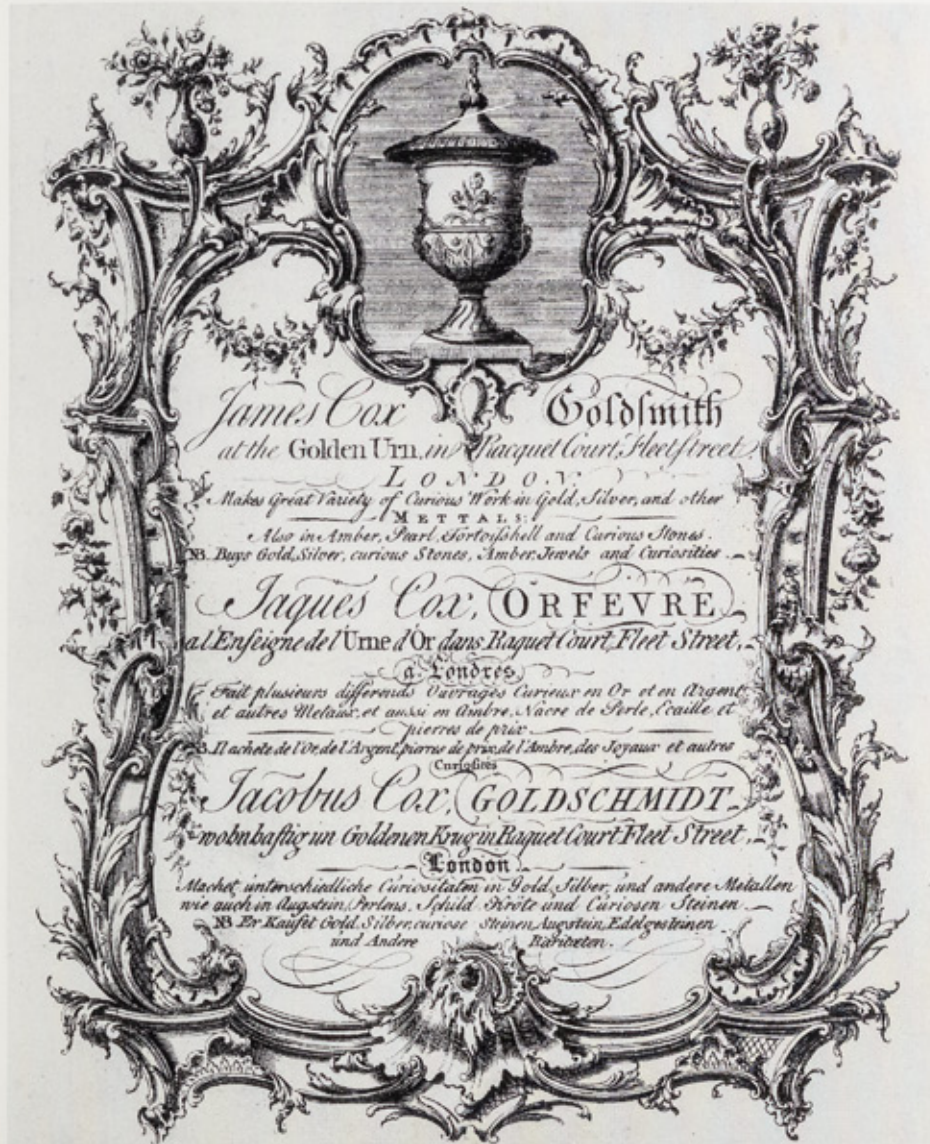 James Cox Goldsmith
at the Golden Urn, in Racquet Court, Fleet street
LONDON,
Makes Great Variety of Curious Work in Gold, Silver, and other
METTALS:
Also in Amber, Pearl, Tortoisshell and Curious Stones.
NB. Buys Gold, Silver, curious Stones, Amber, Jewels and Curiosities.
Jaques Cox, ORFEVRE
a l'Enseigne de l'Urne d'Or dans Raquet Court, Fleet Street,
a. Londres,
Fait plusieurs differends Ouvrages Curieux en Or et en Argent
et autres Metaux, et aussi en Ambre, Nacre de Perle, Ecaille et
pierres de prix
NB. Il achete de l'Or, de l'Argent, pierres de prix, de l'Ambre, des Joyaux et autres
Curiosites
Jacobus Cox, GOLDSCHMIDT
wohnhafftig un Goldenen Krug in Raquet Court Fleet Street,
London.
Machet unterschiedliche Curiositaten in Gold, Silber, und andere Metallen
wie auch in Augstein, Perlens, Schild Kröte und Curiosen Steinen.
NB Er Kaufet Gold, Silber, curiose Steinen Augstein, Edelgesteinen
und Andere Raritæten.